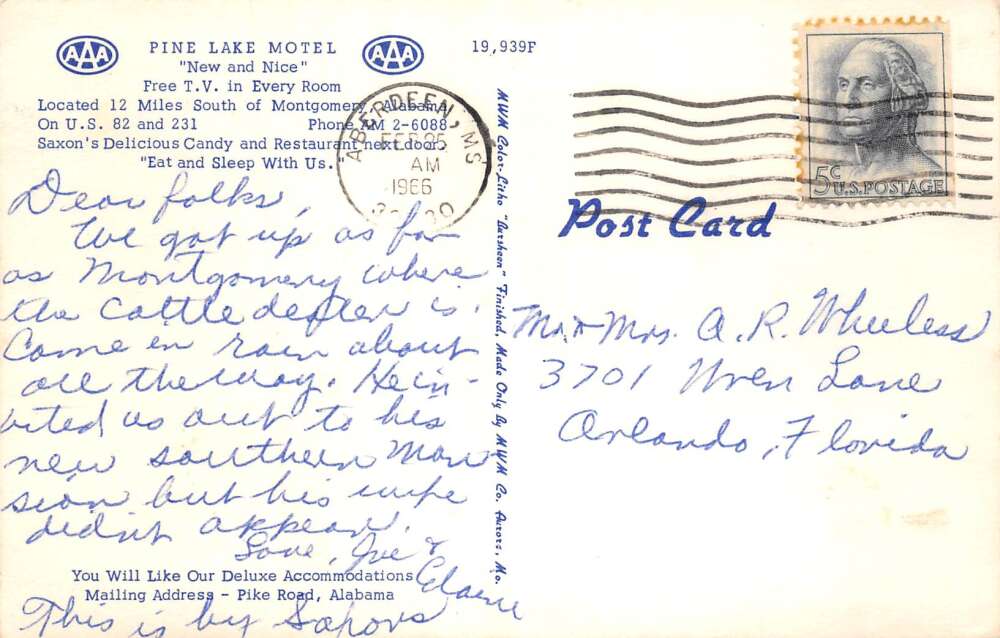 AAA PINE LAKE MOTEL AAA
"New and Nice"
Free T.V. in Every Room
Located 12 Miles South of Montgomery, Alabama
On U.S. 82 and 231 Phone AM 2-6088
Saxon's Delicious Candy and Restaurant next door.
"Eat and Sleep With Us."
Dear folks,
We got up as far
as Montgomery where
the cattle dealer is.
Came in rain about
all the way. He in-
vited us out to his
new southern Man
sion but his wife
didn't appear.
Love, Joe &
Elaine
You Will Like Our Deluxe Accommodations
Mailing Address - Pike Road, Alabama
This is by
19,939F
MWM Color-Litho "Aursheen" Finished, Made Only By MWM Co. Aurora, Mo.
ABERDEEN, MS
FEB 25
AM
1966
5c U.S. POSTAGE
Post Card
Mr. & Mrs. A. R. Wheeless
3701 Wren Lane
Orlando, Florida